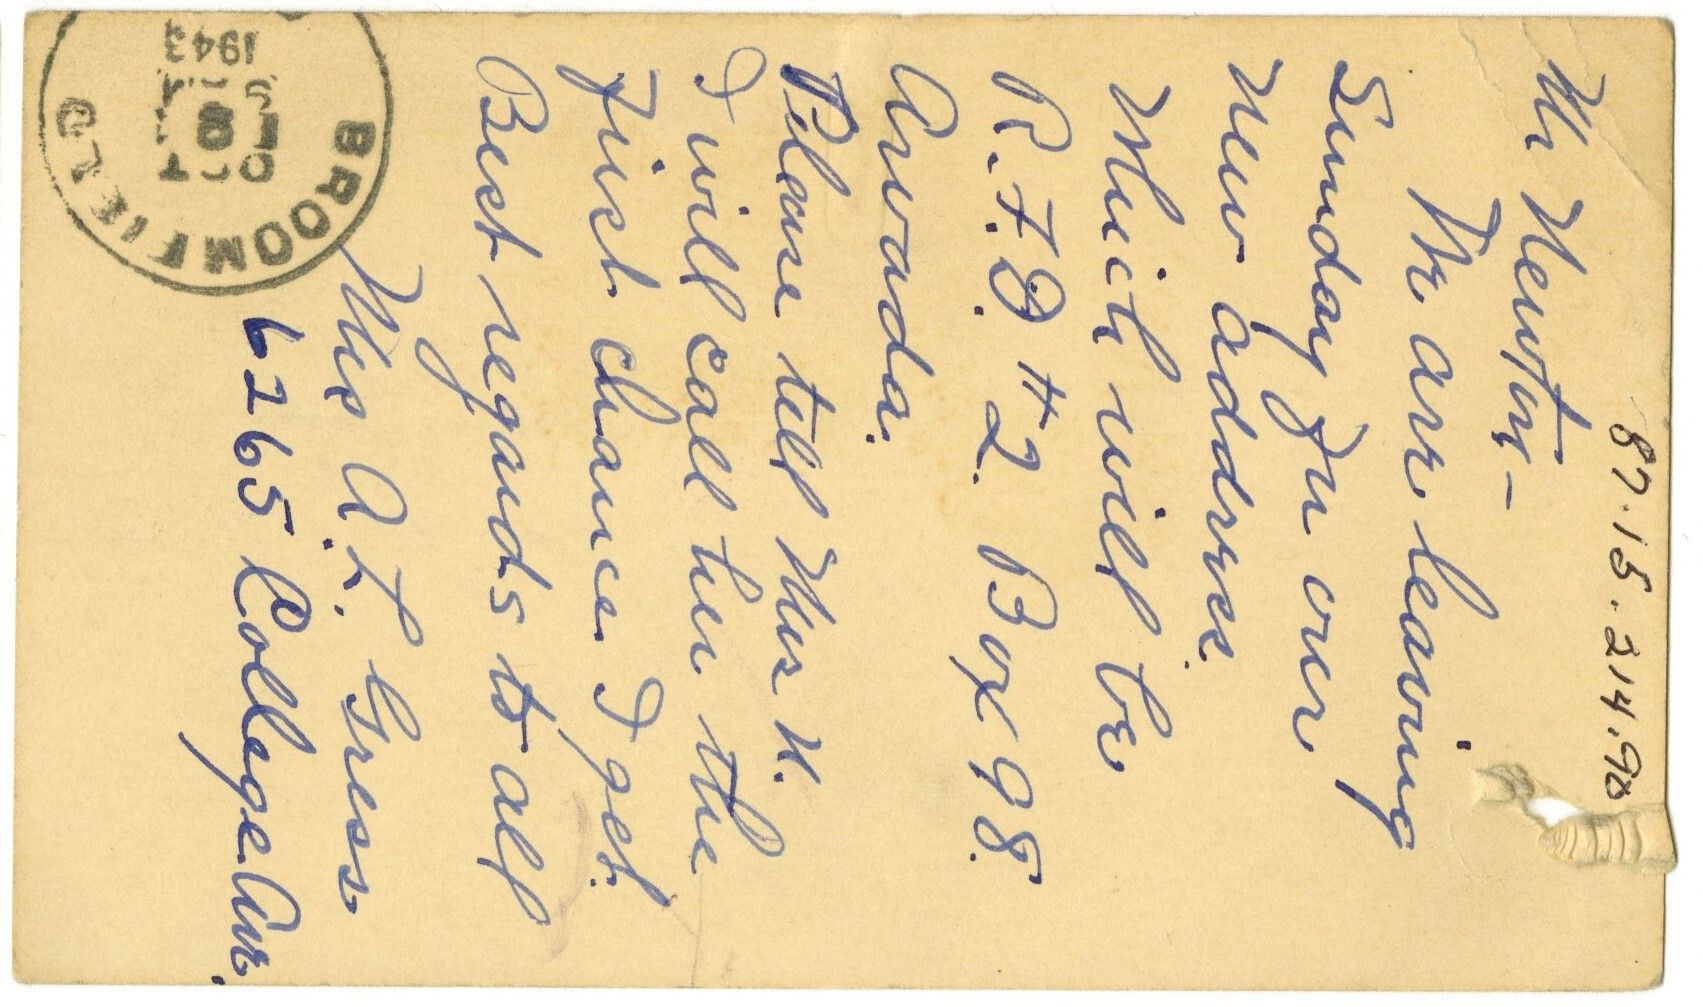 87.15.214.98
Mr Newton -
We are leaving
Sunday for our
New address.
Which will be
R.F.D #2 Box 98.
Arvada.
Please tell Mrs N.
I will call her the
first chance I get.
Best regards to all
Mrs A. L. Gress
6265 College Ave.
BROOMFIELD
OCT
8
1943